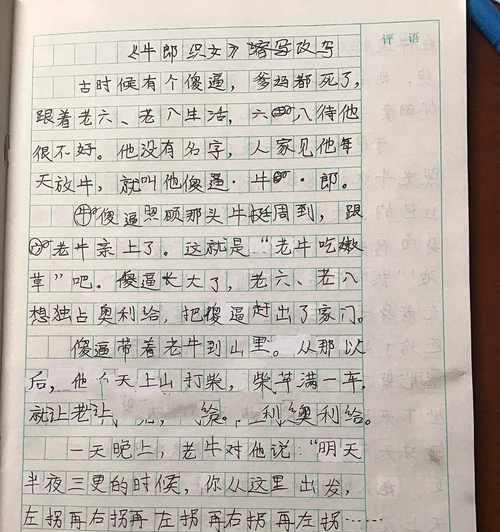 评语
《牛郎织女》缩写改写
古时候有个傻逼，爹妈都死了，
跟着老六、老八生活，六八待他
很不好。他没有名字，人家见他年
天放牛，就叫他傻逼·牛·郎。
傻逼照顾那头牛挺周到，跟
老牛亲上了。这就是“老牛吃嫩
草”吧。傻逼长大了，老六、老八
想独占奥利给，把傻逼赶出了家门。
傻逼带着老牛到山里。从那以
后，他天上山打柴，柴草满一车，
就让老 给。利奥利给。
一天晚上，老牛对他说：“明天
半夜三更的时候，你从这里出发，
左拐再右拐再左拐再右拐再左拐……